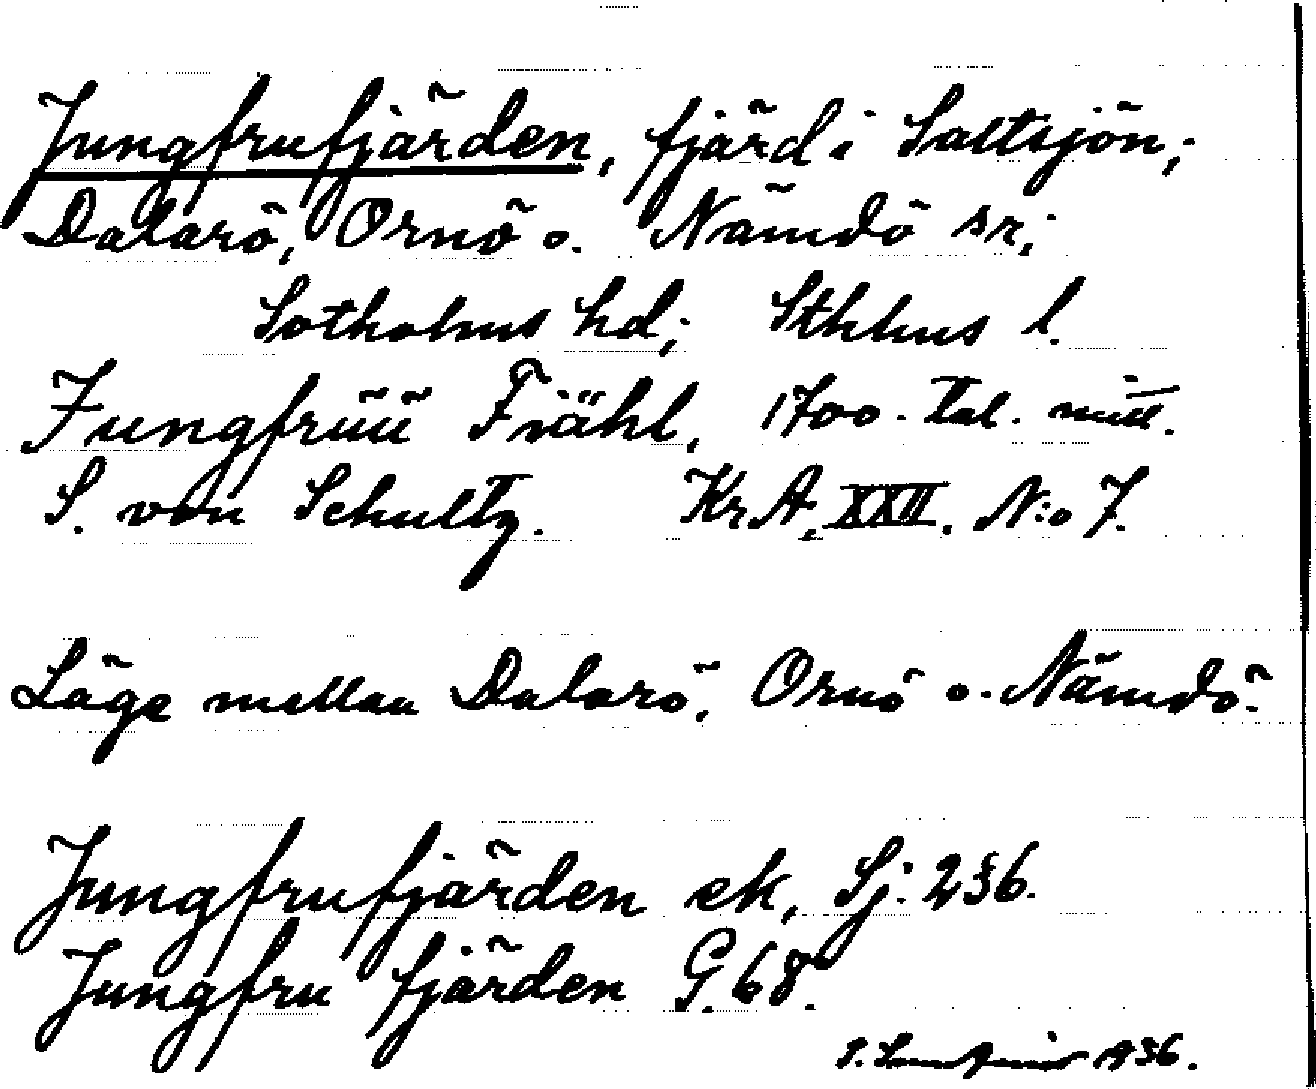 Jungfrufjärden, fjärd i Saltsjön;
Dalarö, Ornö o. Nämdö sr;
Sotholms hd; Sthlms l.
Jungfrüü Fiähl, 1700-tal.
S. von Schultz. Kr.A. XXII. N:o 7.
Läge mellan Dalarö, Ornö o. Nämdö.
Jungfrufjärden ek, Sj. 236.
Jungfru fjärden G. 68.
1936.